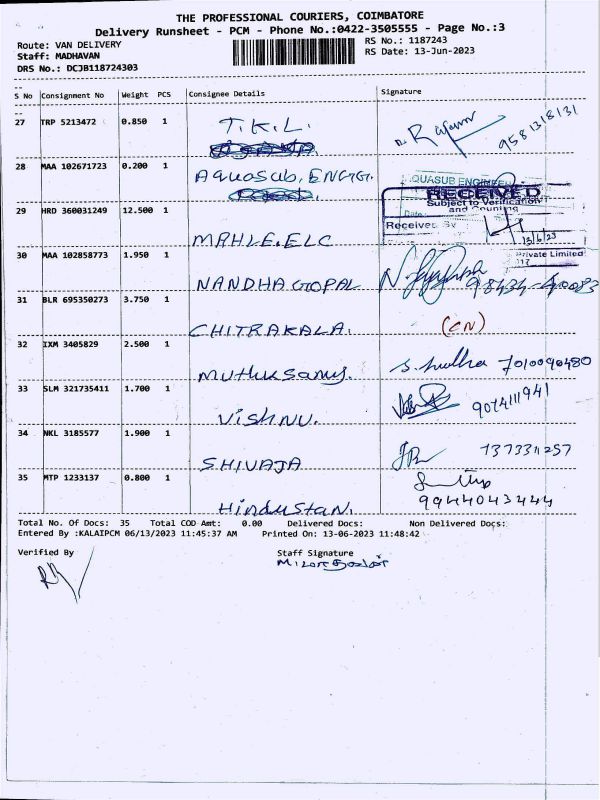 THE PROFESSIONAL COURIERS, COIMBATORE
Delivery Runsheet - PCM - Phone No.:0422-3505555 - Page No.:3
Route: VAN DELIVERY
RS No.: 1187243
Staff: MADHAVAN
RS Date: 13-Jun-2023
DRS No.: DCJB118724303
S No Consignment No Weight PCS Consignee Details Signature
27 TRP 5213472 0.850 1 T.K.L. 9581318131
28 MAA 102671723 0.200 1 Aquasub. ENGG.
QUASUB ENGINEE
RECEIVED
Subject to Verification
and Counting
Date:
29 HRD 360031249 12.500 1 MAHLE.ELC
Received By
13/6/23
Private Limited
30 MAA 102858773 1.950 1 NANDHAGOPAL
31 BLR 695350273 3.750 1 CHITRAKALA. (CN)
32 IXM 3405829 2.500 1 Muthusamy. S. Sudha 7010090480
33 SLM 321735411 1.700 1 Vishnu. 9074111941
34 NKL 3185577 1.900 1 SHIVAJA 137331257
35 MTP 1233137 0.800 1 Hindustan. 9944043444
Total No. Of Docs: 35 Total COD Amt: 0.00 Delivered Docs: Non Delivered Docs:
Entered By :KALAIPCM 06/13/2023 11:45:37 AM Printed On: 13-06-2023 11:48:42
Verified By
Staff Signature